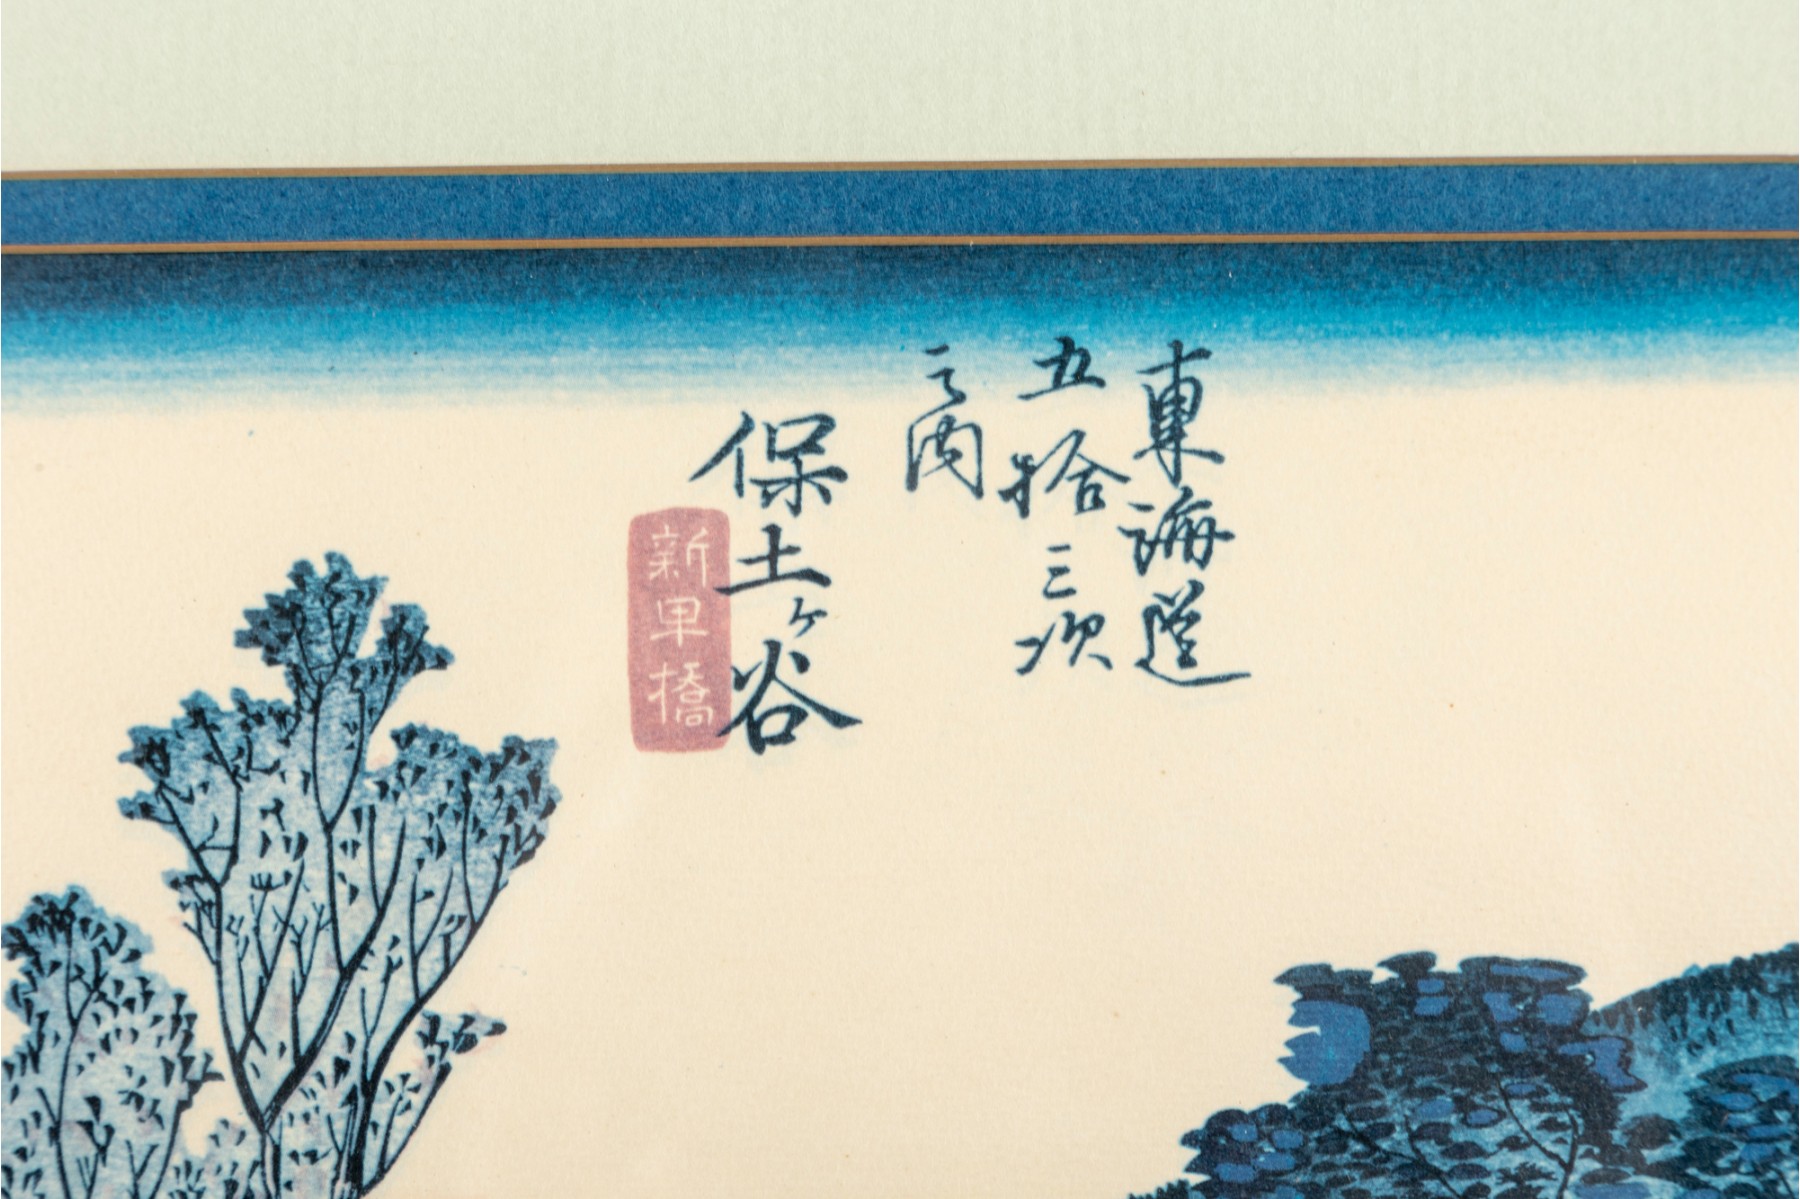 東海道
五拾三次
之内
保土ヶ谷
新田橋